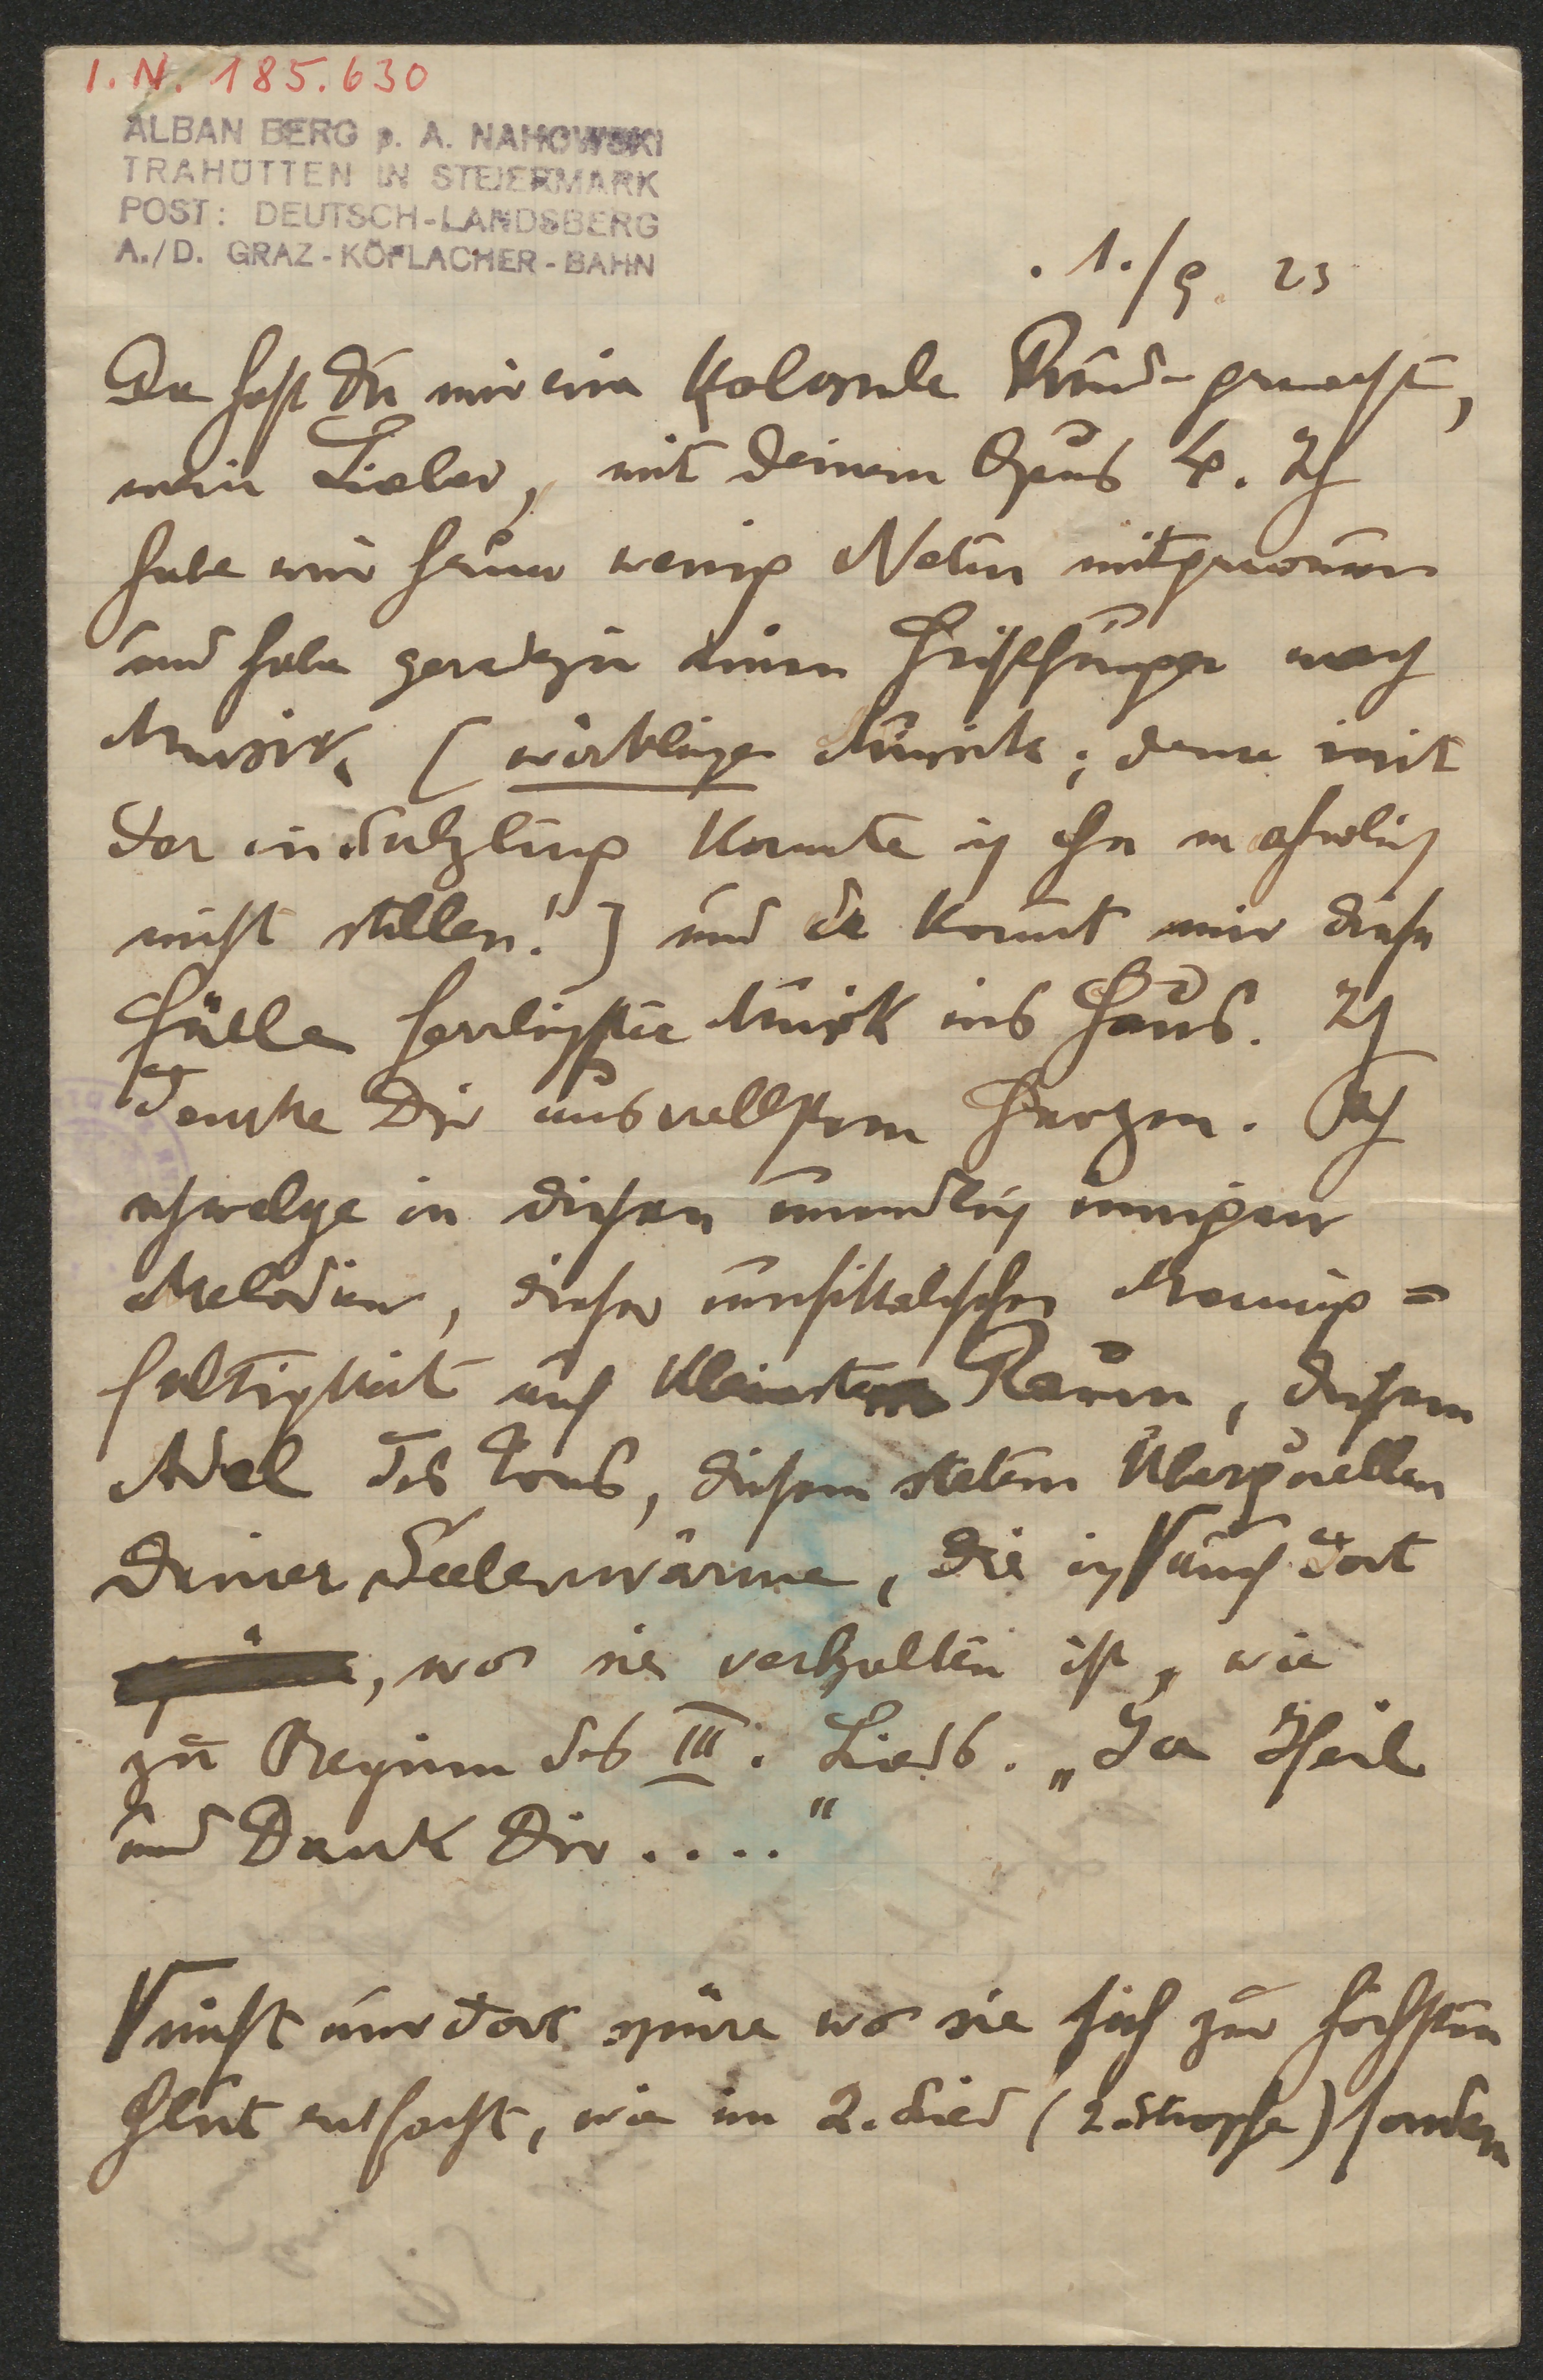 I.N. 185.630
ALBAN BERG p. A. NAHOWSKI
TRAHÜTTEN IN STEIERMARK
POST: DEUTSCH-LANDSBERG
A./D. GRAZ-KÖFLACHER-BAHN
1./9. 23
Da hast Du mir eine kolossale Freude gemacht,
mein Lieber, mit Deinem Opus 4. Ich
habe mir heuer wenig Noten mitgenommen
und habe geradezu einen Heißhunger nach
Musik, [wirklicher Musik; denn mit
der konnte ich ihn wahrlich
nicht stillen!] und da kommt mir diese
Fülle herrlichster Musik ins Haus. Ich
danke Dir aus vollstem Herzen. Ich
schwelge in diesen unendlich innigen
Melodien, dieser musikalischen Mannig=
faltigkeit auf kleinstem Raum, diesem
Adel des Tons, diesem steten Überquellen
Deiner Seelenwärme, die ich V auch dort
, wo sie verhalten ist, wie
zu Beginn des III. Lieds. „Ja Heil
und Dank Dir...."
V nicht nur dort spüre wo sie sich zur höchsten
Glut entfacht, wie im 2. Lied (2. Strophe) sondern